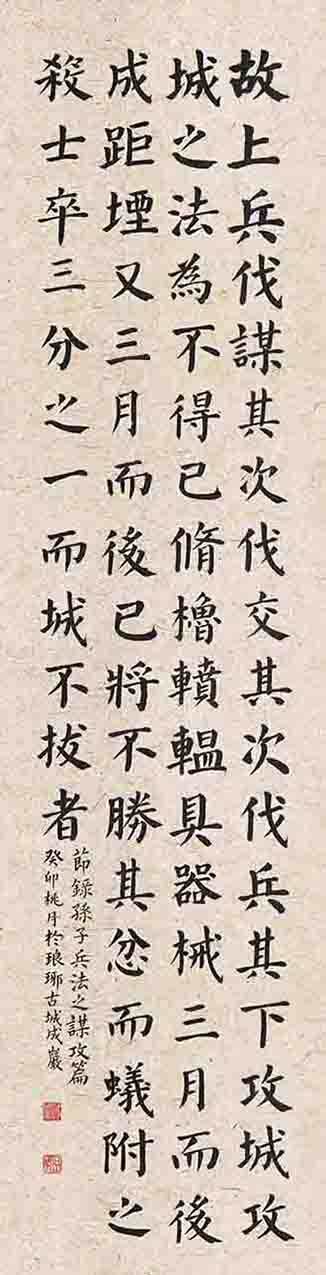 故上兵伐謀其次伐交其次伐兵其下攻城攻
城之法為不得已脩櫓轒轀具器械三月而後
成距堙又三月而後已將不勝其忿而蟻附之
殺士卒三分之一而城不拔者
節錄孫子兵法之謀攻篇
癸卯桃月於琅琊古城成巖